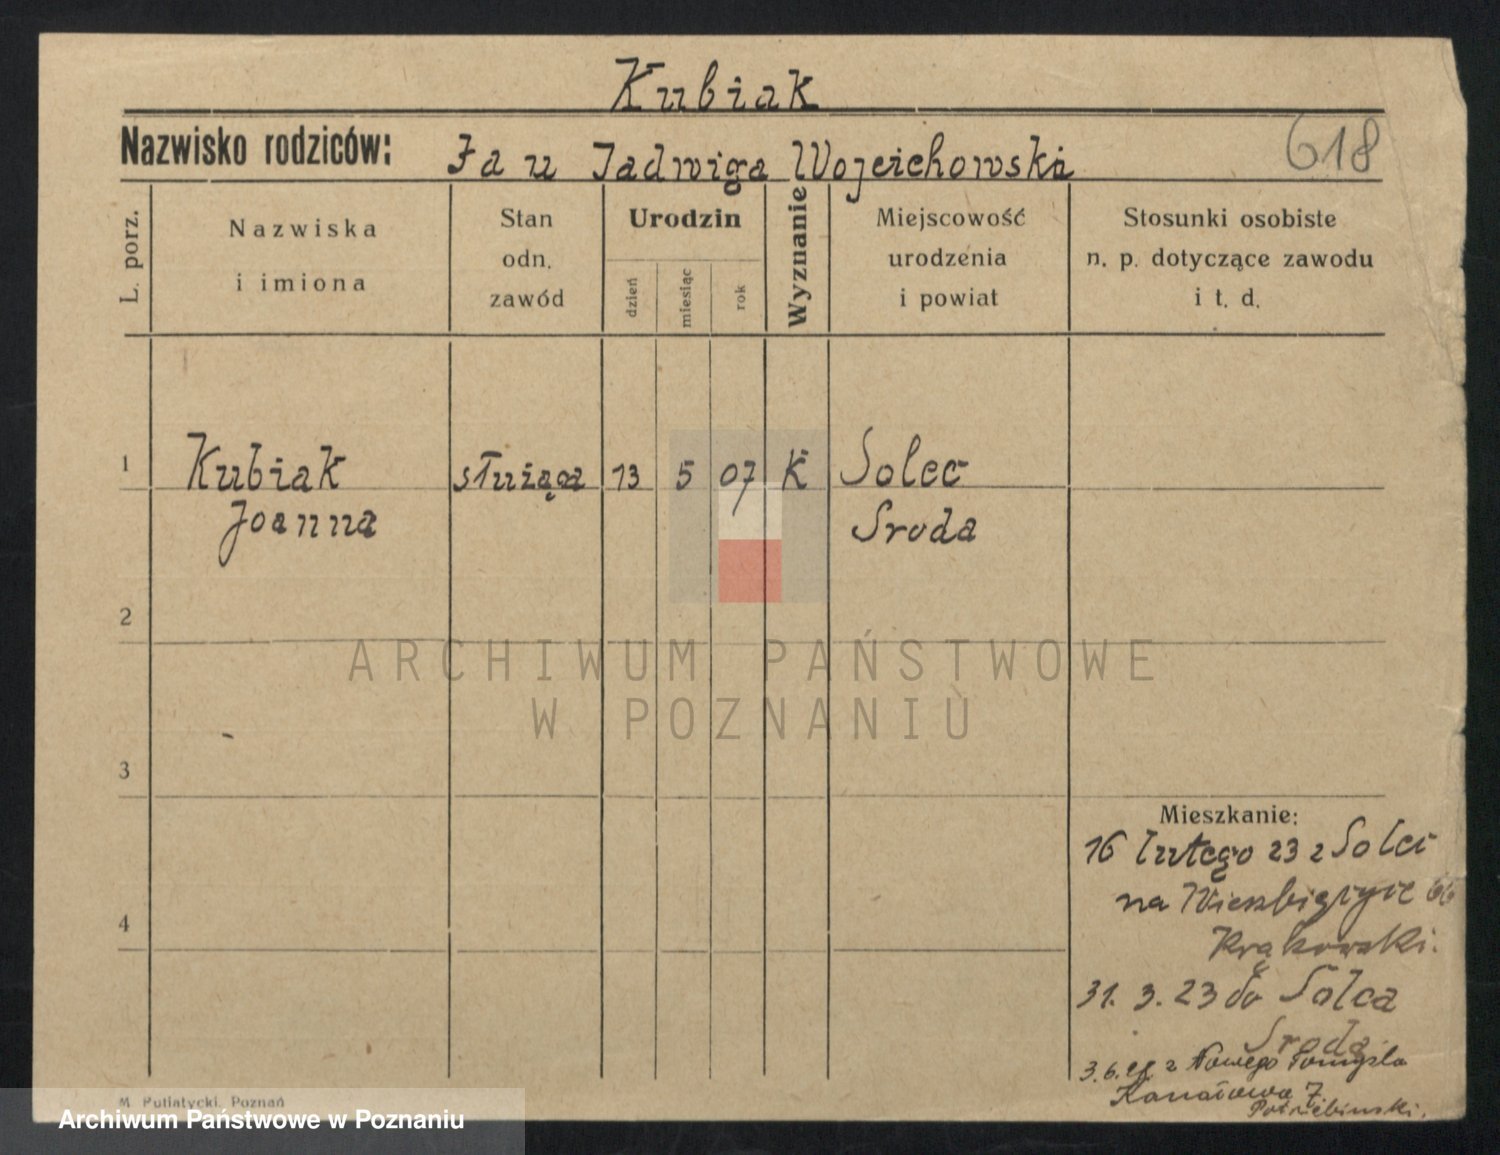 Kubiak
618
Nazwisko rodziców: Jan Jadwiga Wojciehowski
L. porz.
Nazwiska
i imiona
Stan
odn.
zawód
Urodzin
dzień
miesiąc
rok
Wyznanie
Miejscowość
urodzenia
i powiat
Stosunki osobiste
n. p. dotyczące zawodu
i t. d.
1 Kubiak służąca 13 5 07 K Solec
Joanna Sroda
2
ARCHIWUM PAŃSTWOWE
W POZNANIU
3
Mieszkanie:
16 lutego 23 z Solci
na 66
4
Krąkowski.
31. 3. 23 do Solca
Sroda.
3.6. z Nowego Tomyśla
Kanałowa 7
Potrzebinski.
M. Putiatycki, Poznań
Archiwum Państwowe w Poznaniu